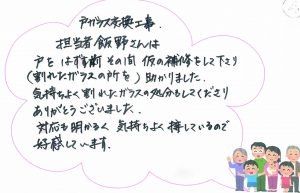 戸ガラス交換工事.
担当者飯野さんは
戸をはずす前その間仮の補修をして下さり
(割れたガラスの所を)助かりました.
気持ちよく割れたガラスの処分もしてくださり
ありがとうございました.
対応も明かるく気持ちよく接しているので
好感しています.